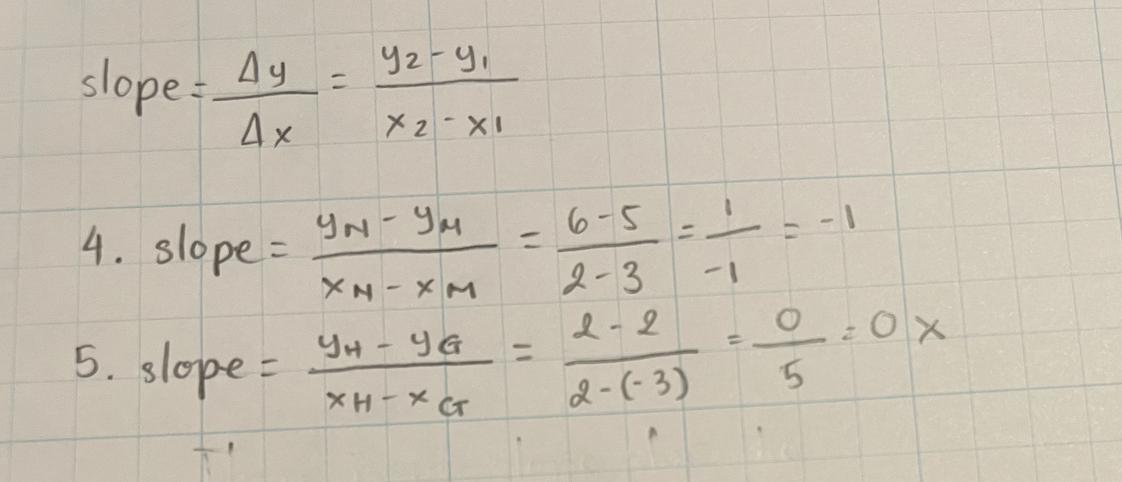 slope = Δy/Δx = y₂ - y₁/x₂ - x₁
4. slope = y_N - y_M/x_N - x_M = 6 - 5/2 - 3 = 1/-1 = -1
5. slope = y_H - y_G/x_H - x_G = 2 - 2/2 - (-3) = 0/5 = 0 x